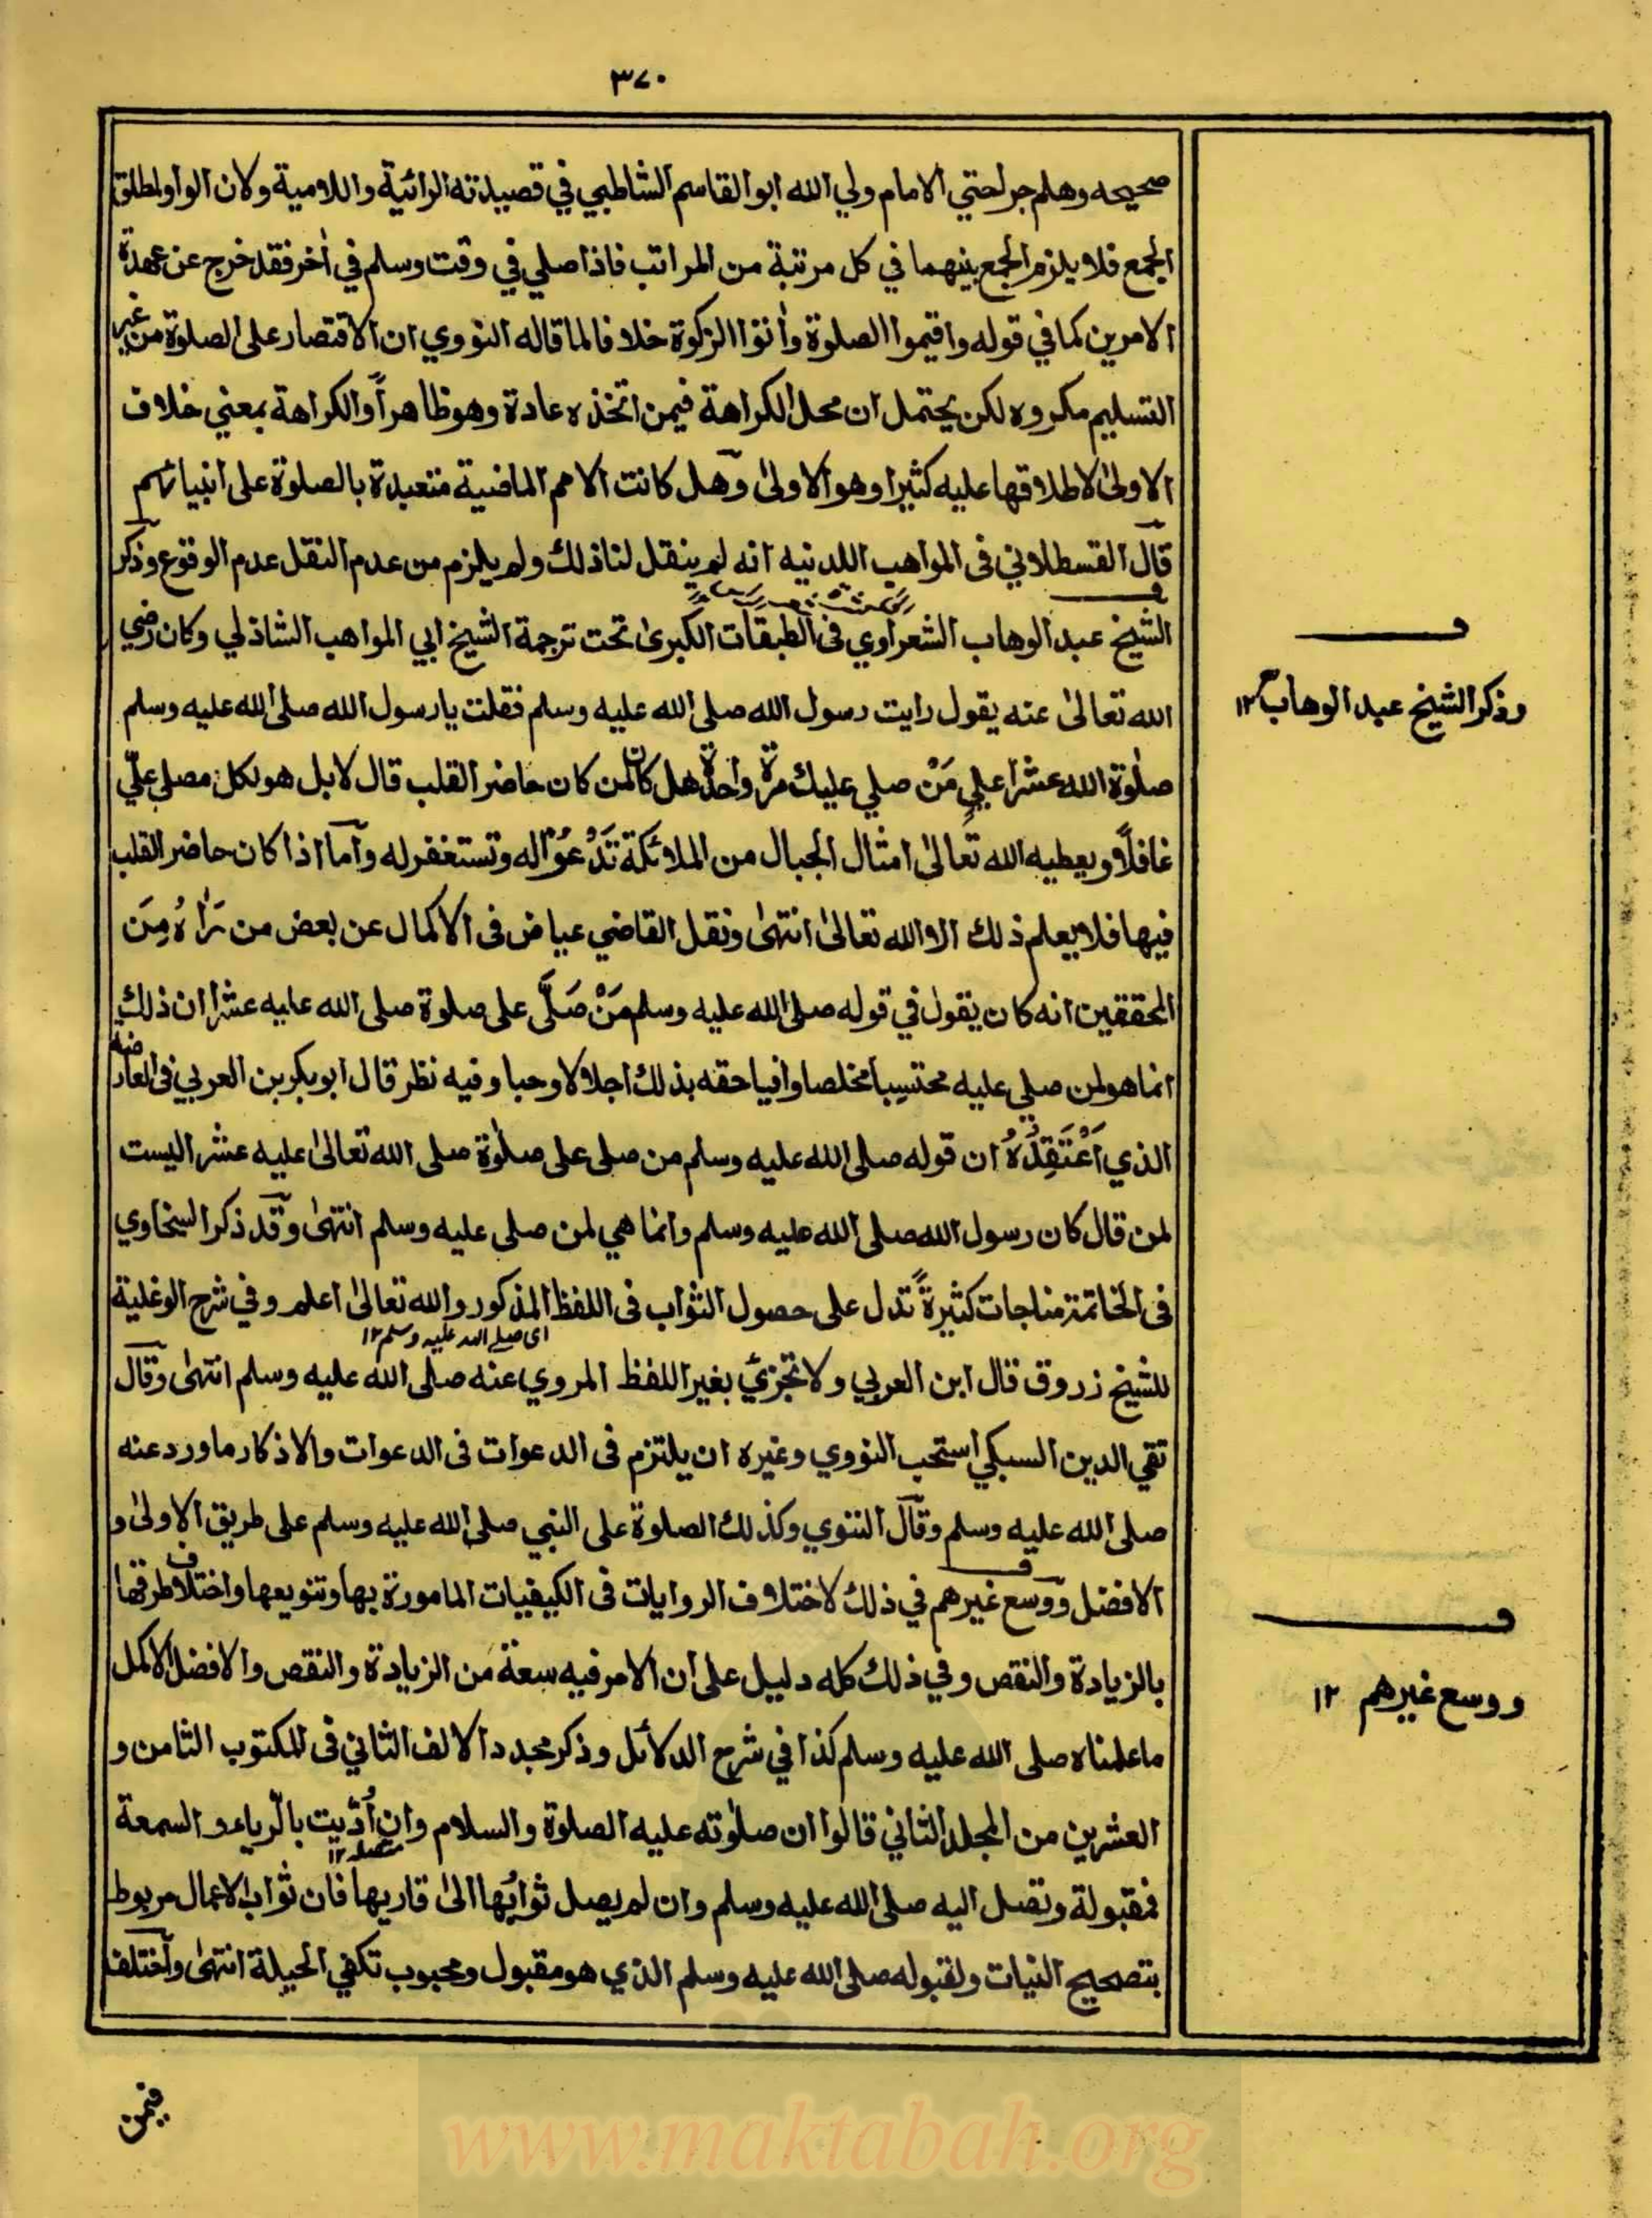 ٣٧٠
صحيحه وهلم جرا حتي الامام ولي الله ابو القاسم الشاطبي في قصيدته الرائية واللامية ولان الواو لمطلق
الجمع فلا يلزم الجمع بينهما في كل مرتبة من المراتب فاذا صلي في وقت وسلم في أخر فقد خرج عن عهدة
الامرين كما في قوله واقيموا الصلوة وأتوا الزكوة خلافا لما قاله النووي ان الاقتصار على الصلوة من غير
التسليم مكروه لكن يحتمل ان محل الكراهة فيمن اتخذه عادة وهو ظاهر أو الكراهة بمعني خلاف
الاولى لاطلاقها عليه كثيرا وهو الاولى وهل كانت الامم الماضية متعبدة بالصلوة على انبيائهم
قال القسطلاني فى المواهب اللدنيه انه لم ينقل لنا ذلك ولم يلزم من عدم النقل عدم الوقوع وذكر
الشيخ عبد الوهاب الشعراوي فى الطبقات الكبرى تحت ترجمة الشيخ ابي المواهب الشاذلي وكان رضي
الله تعالى عنه يقول رايت رسول الله صلى الله عليه وسلم فقلت يا رسول الله صلى الله عليه وسلم
صلوة الله عشرا علي مَنْ صلي عليك مرة واحدة هل كان لمن كان حاضر القلب قال لا بل هو لكل مصلي عليّ
غافلاً ويعطيه الله تعالى امثال الجبال من الملائكة تَدْعُوْا له وتستغفر له وأما اذا كان حاضر القلب
فيها فلا يعلم ذلك الا الله تعالى انتهى ونقل القاضي عياض فى الاكمال عن بعض من رَاٰهُ مِنَ
المحققين انه كان يقول في قوله صلى الله عليه وسلم مَنْ صَلَّى على صلوة صلى الله عليه عشرا ان ذلك
انما هو لمن صلي عليه محتسبا مخلصا وافيا حقه بذلك اجلالا وحبا وفيه نظر قال ابو بكر بن العربي فى العارضة
الذي اَعْتَقِدُهُ ان قوله صلى الله عليه وسلم من صلى على صلوة صلى الله تعالى عليه عشرا ليست
لمن قال كان رسول الله صلى الله عليه وسلم وانما هي لمن صلى عليه وسلم انتهى وقد ذكر السخاوي
فى الخاتمة مناجات كثيرةً تدل على حصول الثواب فى اللفظ المذكور والله تعالى اعلم وفي شرح الوغلية
اى صلے الله عليه وسلم ١٢
للشيخ زروق قال ابن العربي ولا تجزئ بغير اللفظ المروي عنه صلى الله عليه وسلم انتهى وقال
تقي الدين السبكي استحب النووي وغيره ان يلتزم فى الدعوات فى الدعوات والاذكار ما ورد عنه
صلى الله عليه وسلم وقال النووي وكذلك الصلوة على النبي صلى الله عليه وسلم على طريق الاولى و
الافضل ووسع غيرهم في ذلك لاختلاف الروايات فى الكيفيات المامورة بها وتنويعها واختلاف طرقها
بالزيادة والنقص وفي ذلك كله دليل على ان الامر فيه سعة من الزيادة والنقص والافضل الاكمل
ما علمناه صلى الله عليه وسلم كذا في شرح الدلائل وذكر مجدد الالف الثاني فى المكتوب الثامن و
العشرين من المجلد الثاني قالوا ان صلوته عليه الصلوة والسلام وان اُدّيت بالرياء والسمعة
فمقبولة وتصل اليه صلى الله عليه وسلم وان لم يصل ثوابُها الى قاريها فان ثواب الاعمال مربوط
بتصحيح النيات ولقبوله صلى الله عليه وسلم الذي هو مقبول ومحبوب تكفي الحيلة انتهى وأختلف
وذكر الشيخ عبد الوهاب ١٢
ووسع غيرهم ١٢
فيمن
www.maktabah.org